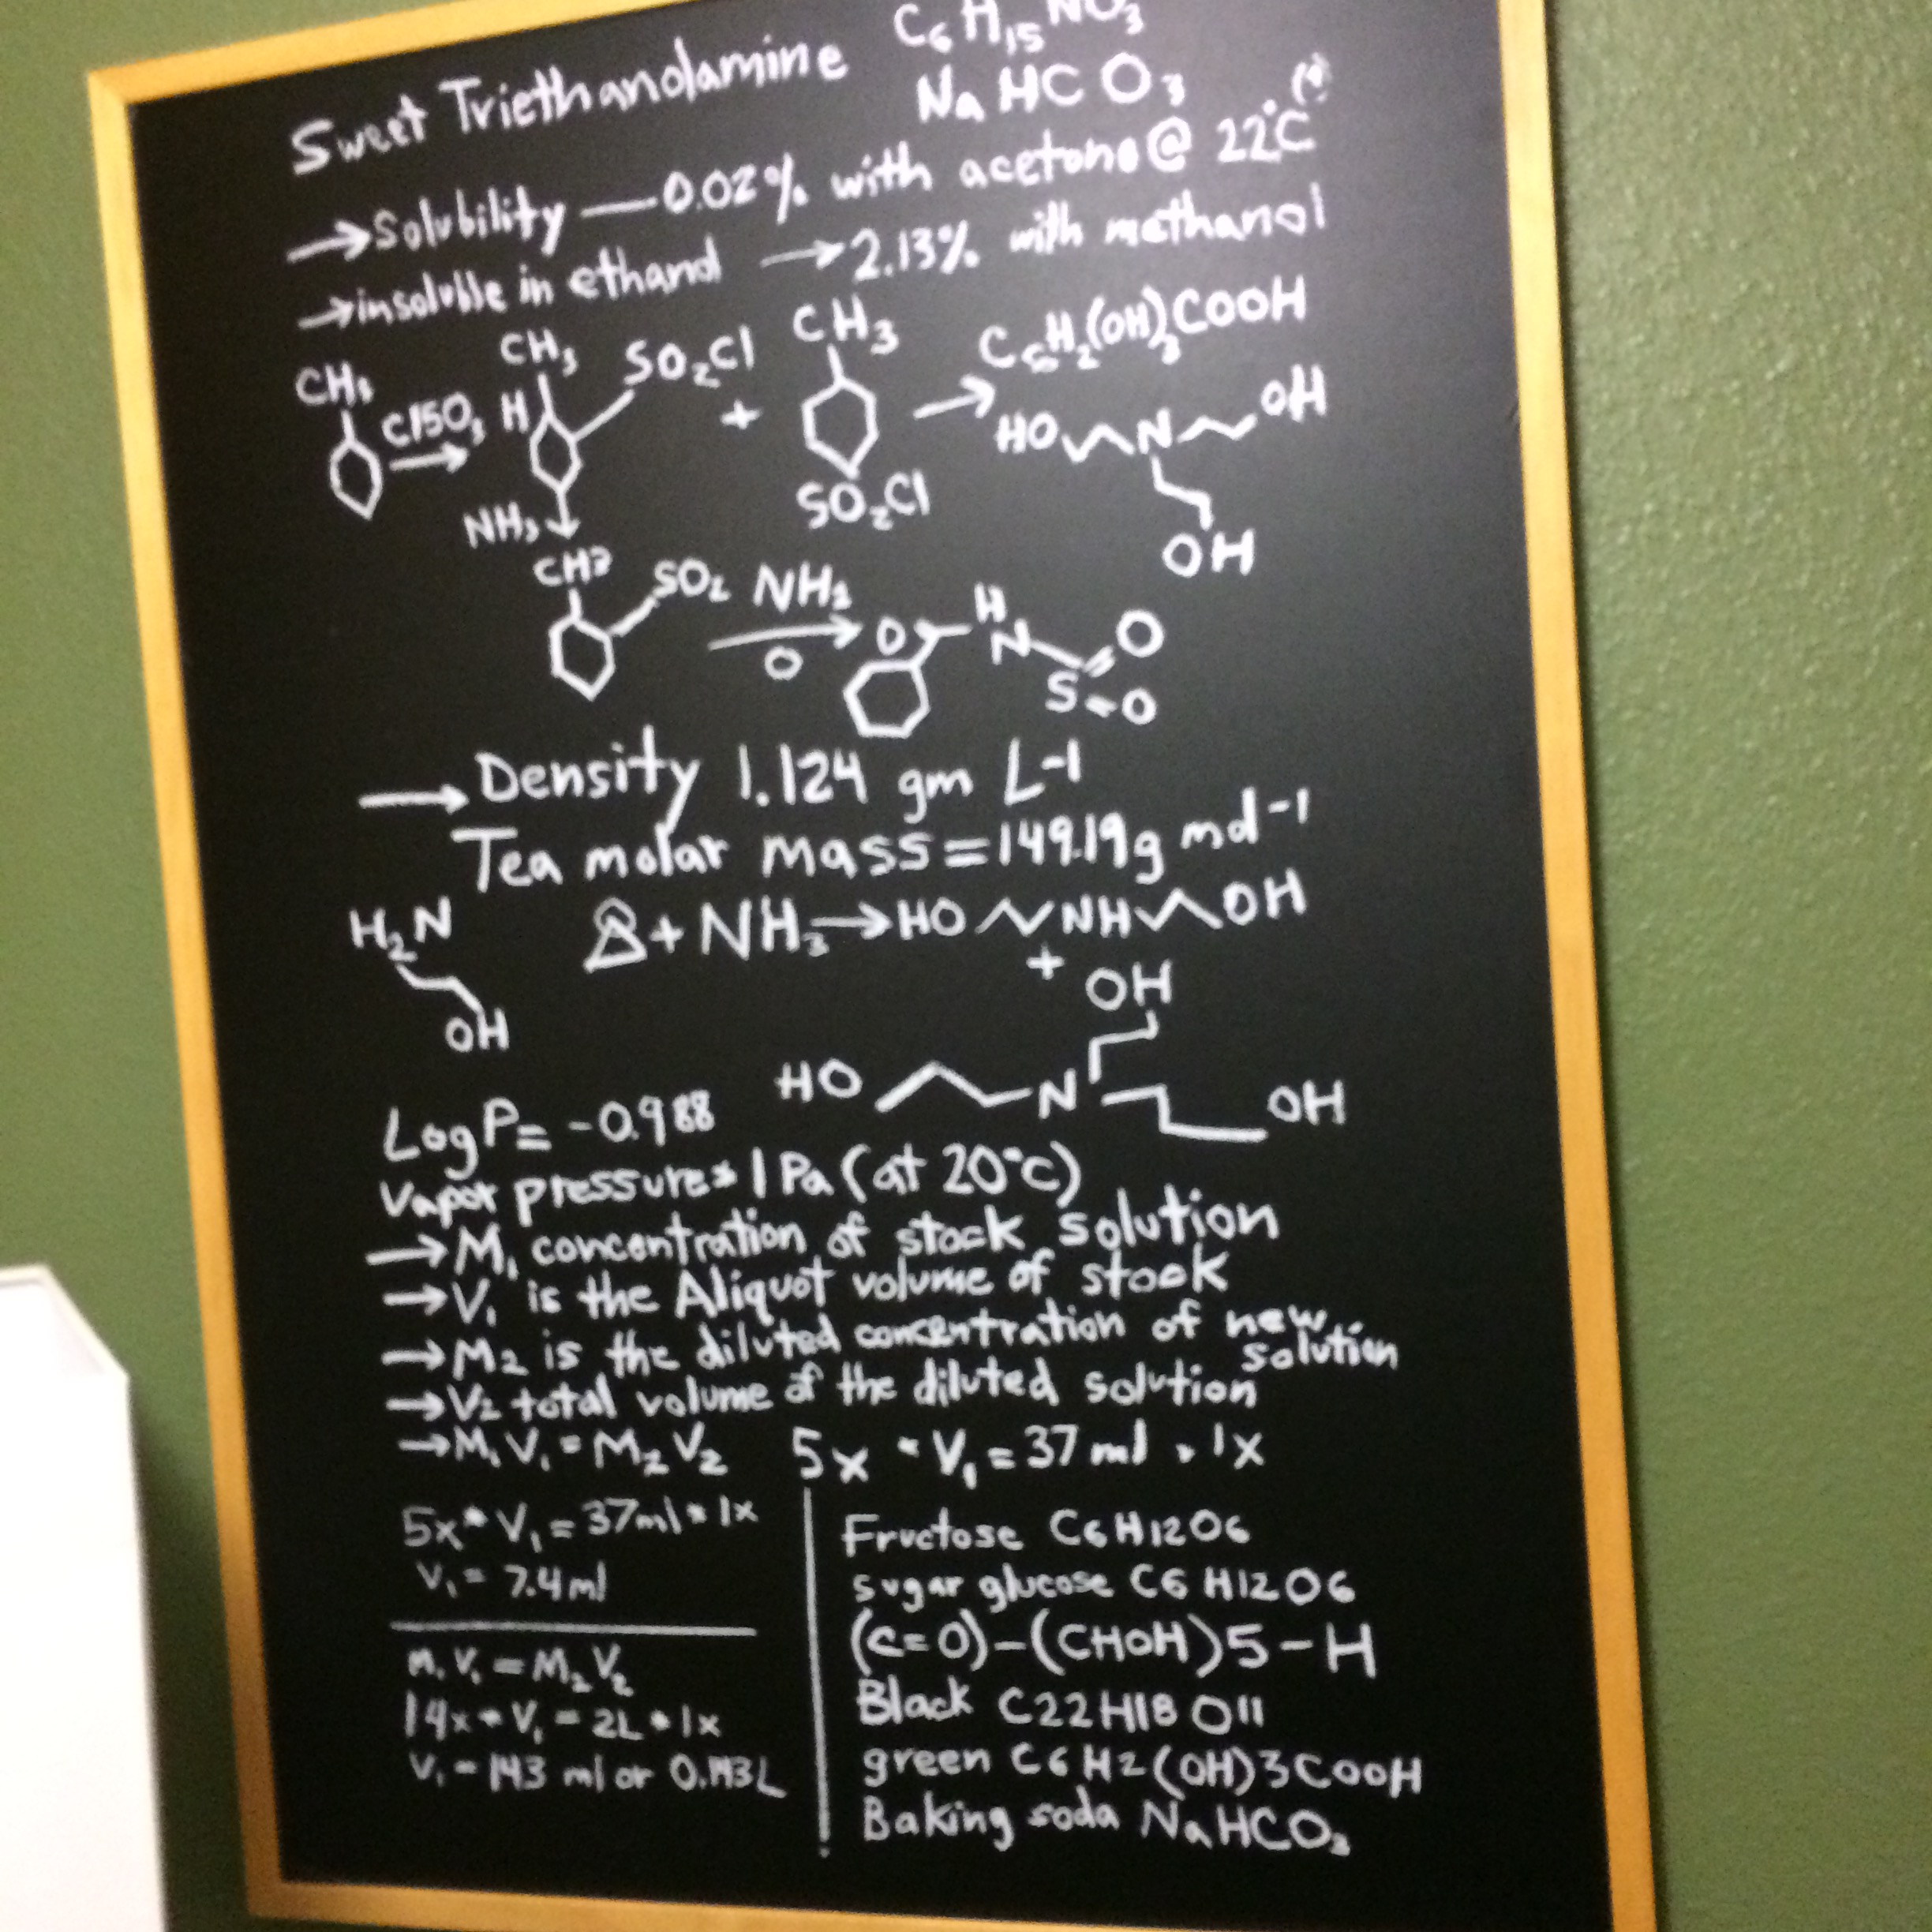 Sweet Triethanolamine C₆H₁₅NO₃
NaHCO₃
→Solubility — 0.02% with acetone @ 22°C
→insoluble in ethanol → 2.13% with methanol
CH₃ CH₃ SO₂Cl CH₃ C₆H₂(OH)₃COOH
H + →
HO N OH
NH₃ SO₂Cl OH
SO₂ NH₂
O O H N S O O
→Density 1.124 gm L⁻¹
Tea molar mass = 149.19g mol⁻¹
H₂N + NH₃ → HO NH OH
+
OH OH
HO N OH
Log P = -0.988
Vapor pressure = 1 Pa (at 20°C)
→M₁ concentration of stock solution
→V₁ is the Aliquot volume of stock
→M₂ is the diluted concentration of new solution
→V₂ total volume of the diluted solution
→M₁V₁ = M₂V₂ 5x * V₁ = 37ml * 1x
5x * V₁ = 37ml * 1x
V₁ = 7.4ml
M₁V₁ = M₂V₂
14x * V₁ = 2L * 1x
V₁ = 143 ml or 0.143L
Fructose C6H12O6
sugar glucose C6H12O6
(C=O)-(CHOH)5-H
Black C22H18O11
green C6H2(OH)3COOH
Baking soda NaHCO₃